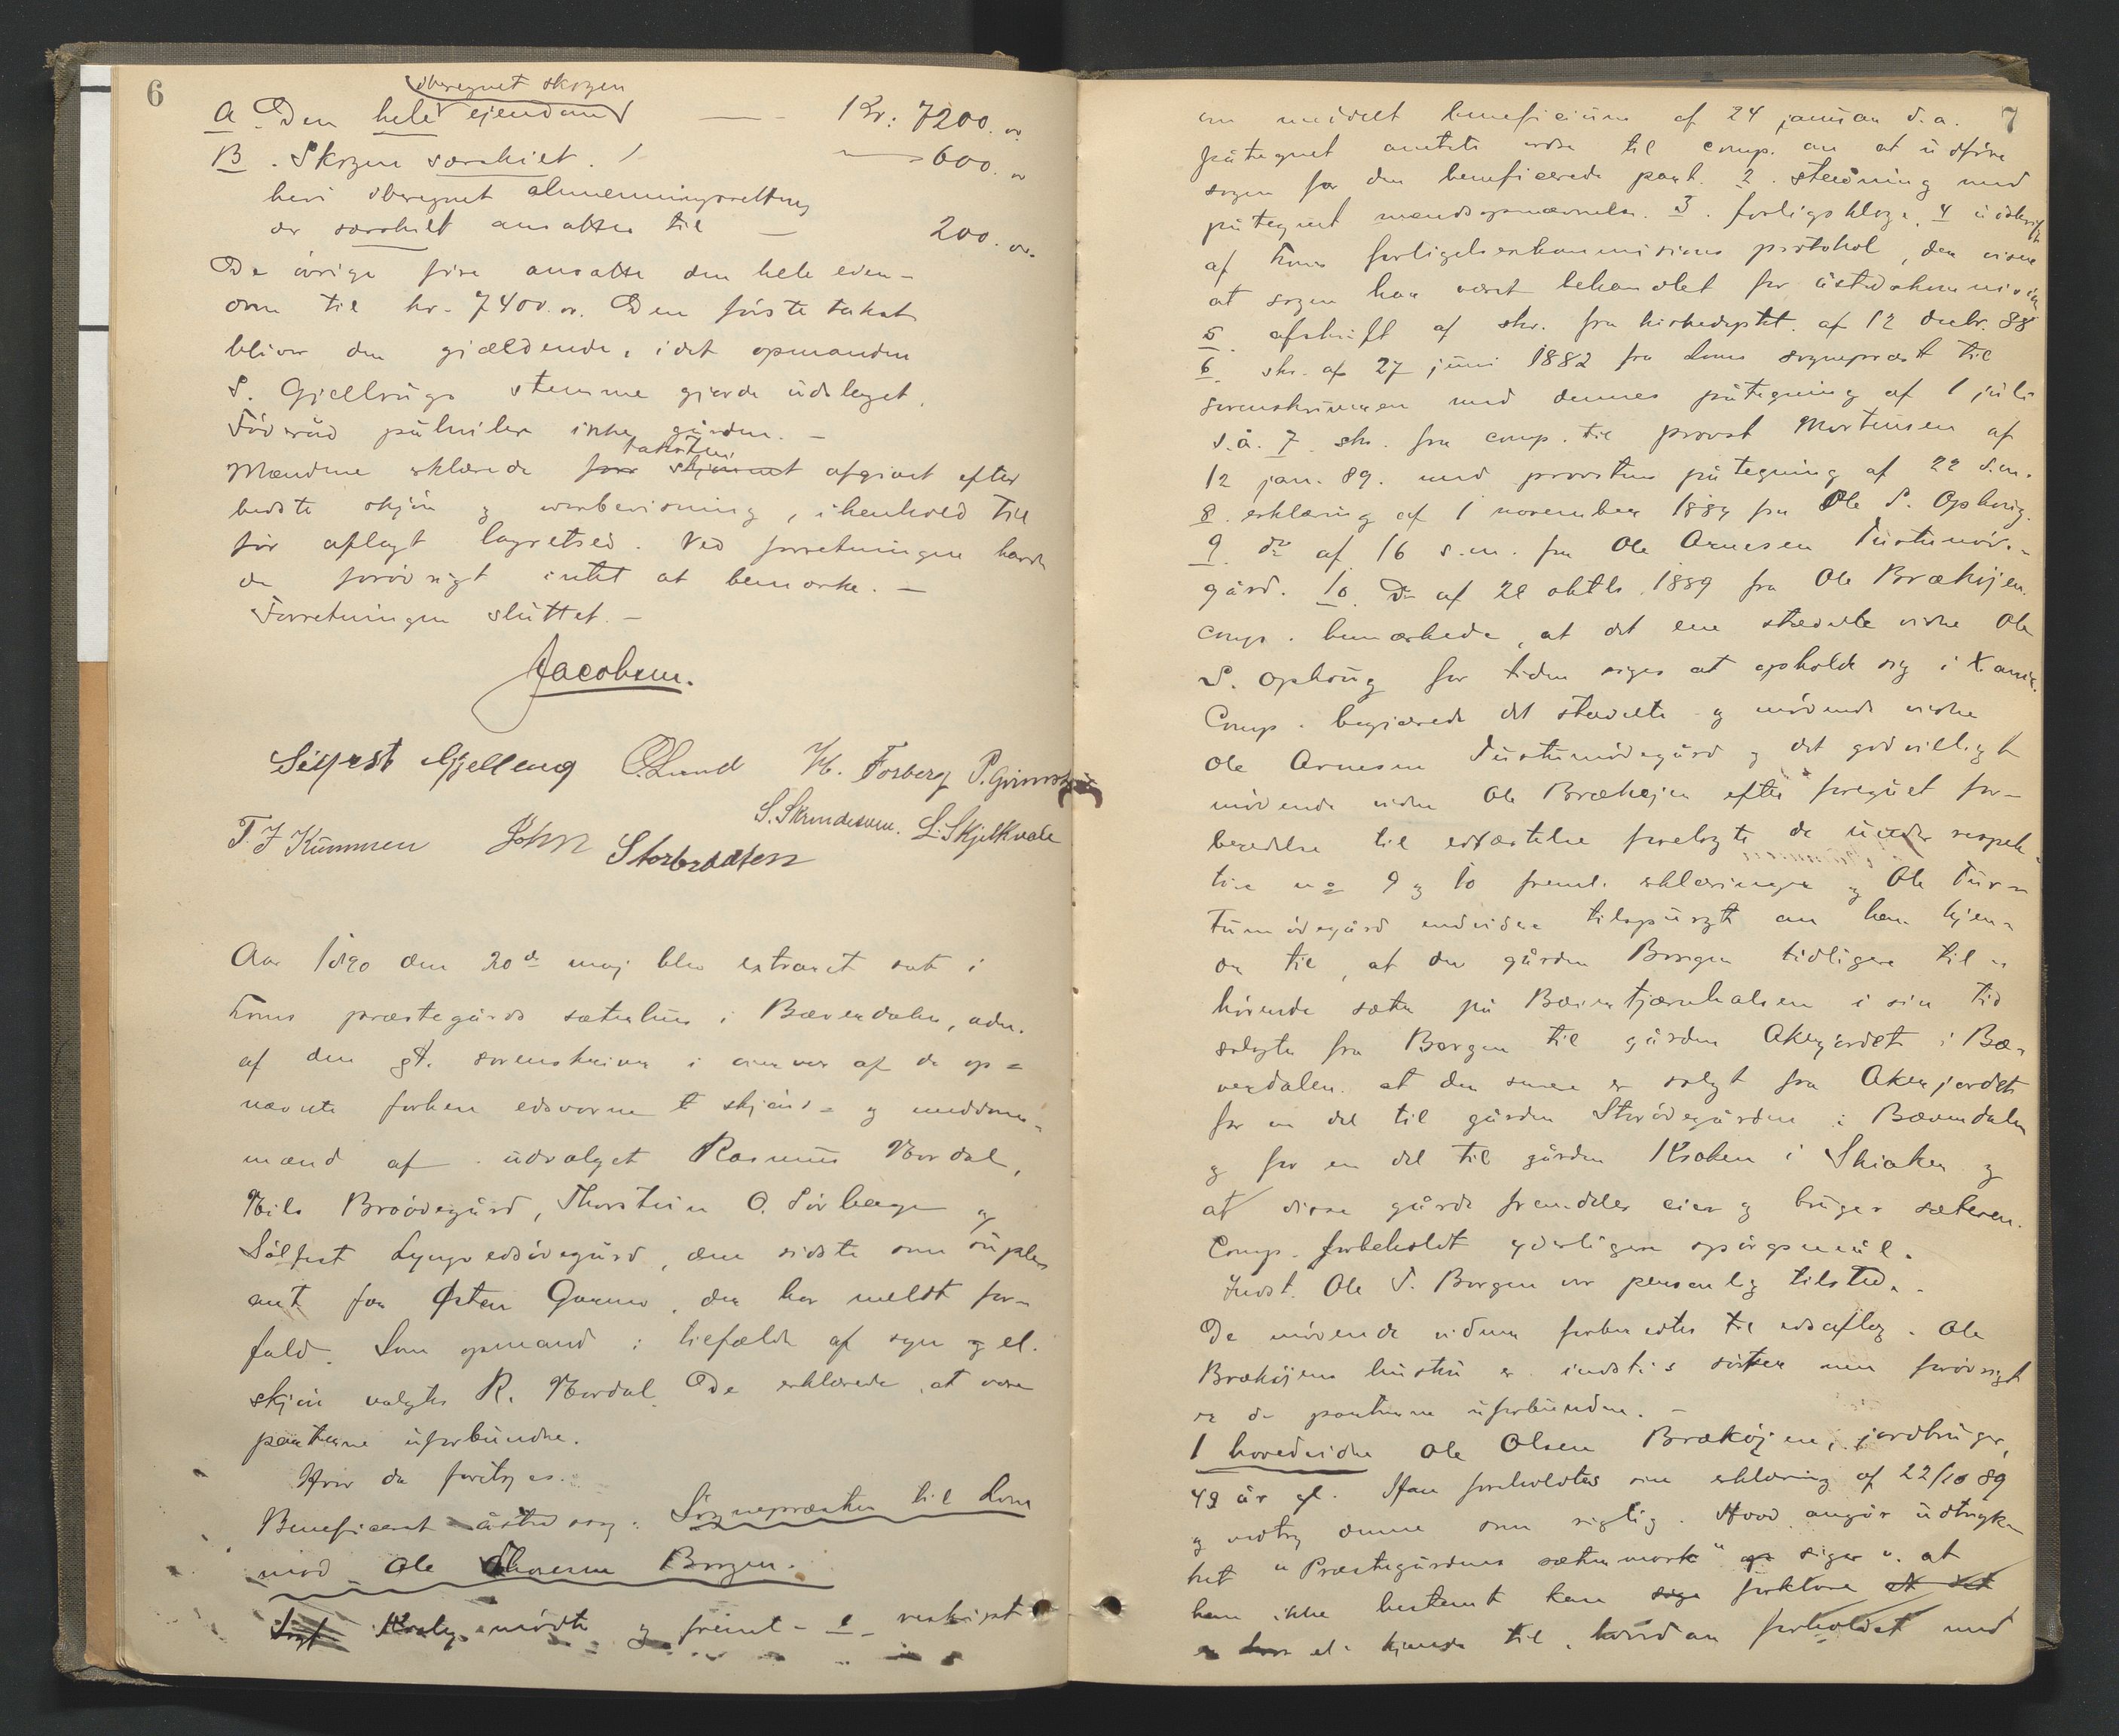 6
iberegnet skogen
A. Den hele ejendom — Kr: 7200.00
B. Skogen særskilt. — 600.00
heri iberegnet almenningsretten,
der særskilt ansattes til — 200.00.
De øvrige fire ansatte den hele eien-
dom til kr. 7400.00. Den første takst
bliver den gjældende, idet opmanden
S. Gjellrugs stemme gjorde udslaget.
Føderåd påhviler ikke gården. —
taksten
Mændene erklærede for skjønnet afgivet efter
bedste skjøn og overbevisning, i henhold til
før aflagt lagretsed. Ved forretningen havde
de forøvrigt intet at bemærke. —
Forretningen sluttet. —
Jacobsen.
Sigfrst Gjelleng O. Lund H. Forberg P. Grimst
S. Skrindesven. L. Skjelkvale
T. J Kummen John Storbraaten
Aar 1890 den 20de maj blev extraret sat i
Loms præstegårds sæterhus i Bæverdalen, adm.
af den gt. sorenskriver i overvær af de op-
nævnte forhen edsvorne t skjøns- og meddoms-
mænd af udvalget Rasmus Nordal,
Nils Brøødegård, Thorstein O. Sørhage og
Sølfest Lyngvedsødegård, den sidste som suple-
ant for Østen Garmo, der har meldt for-
fald. Som opmand i tilfælde af syn og el.
skjøn valgtes R. Nordal. De erklærede at være
parterne uforbundne.
Hvor da foretoges.
Beneficeret åstedssag: Sognepræsten til Lom
mod Ole Borgen.
mødte og freml. 1 reskript
7
om meddelt beneficium af 24 januar d.a.
påtegnet amtets ordre til comp. om at udføre
sagen for den beneficerede part. 2. stævning med
påtegnet mandsopnævnelse. 3. forligsklage, 4 udskrift
af Loms forligelseskommissions protokol, der viser
at sagen har været behandlet for åstedskommission
5. afskrift af skr. fra kirkedeptet. af 12 decbr. 88
6. skr. af 27 juni 1882 fra Loms sognepræst til
sorenskriveren med dennes påtegning af 1 juli
s.å. 7. skr. fra comp. til provst Mortensen af
12 jan. 89. med provstens påtegning af 22 s.m.
8. erklæring af 1 november 1889 fra Ole S. Ophoug.
9. do af 16 s.m. fra Ole Arnesen Tustumøde-
gård. 10. Do af 22 oktbr. 1889 fra Ole Brækøjen.
Comp. bemærkede, at det ene stævnte vidne Ole
S. Ophoug for tiden siges at opholde sig i N. amer.
Comp. begjærede det stævnte og mødende vidne
Ole Arnesen og det godvilligt
mødende vidne Ole Brækøjen efter foregået for-
beredelse til edfæstelse forelagt de under respek-
tive no 9 og 10 freml. erklæringer og Ole Tus-
tumødegård endvidere tilspurgt om han kjen-
der til, at den gården Borgen tidligere til-
hørende sæter på Bævertjærnhalsen i sin tid
solgtes fra Borgen til gården Akerjordet i Bæ-
verdalen. at den senere er solgt fra Akerjordet
for en del til gården Storødegården i Bæverdalen
og for en del til gården Kroken i Skiaker og
at disse gårde fremdeles eier og bruger sæteren.
Comp. forbeholdt yderligere spørgsmål.
Indst. Ole T. Borgen var personlig tilsted.
De mødende vidner forberedtes til edsaflæg. Ole
Brækøjens hustru er indst.s søster men forøvrigt
er de parterne uforbundne. —
1 hovedvidne Ole Olsen Brækøjen, jordbruger,
49 år gl. Han foreholdtes sin erklæring af 22/10 89
og vedtog denne som rigtig. Hvad angår udtryk-
ket "Præstegårdens sætermark" siger v. at
han ikke bestemt kan sige forklare at det
el. kjende til, hvordan forholdet med